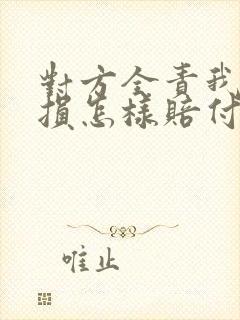 對方全責我
損怎樣賠付
唯止